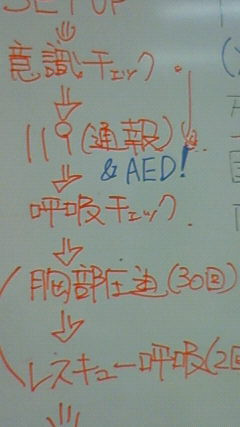 SETUP
意識チェック
119(通報)
& AED!
呼吸チェック
(胸部圧迫(30回)
レスキュー呼吸(2回